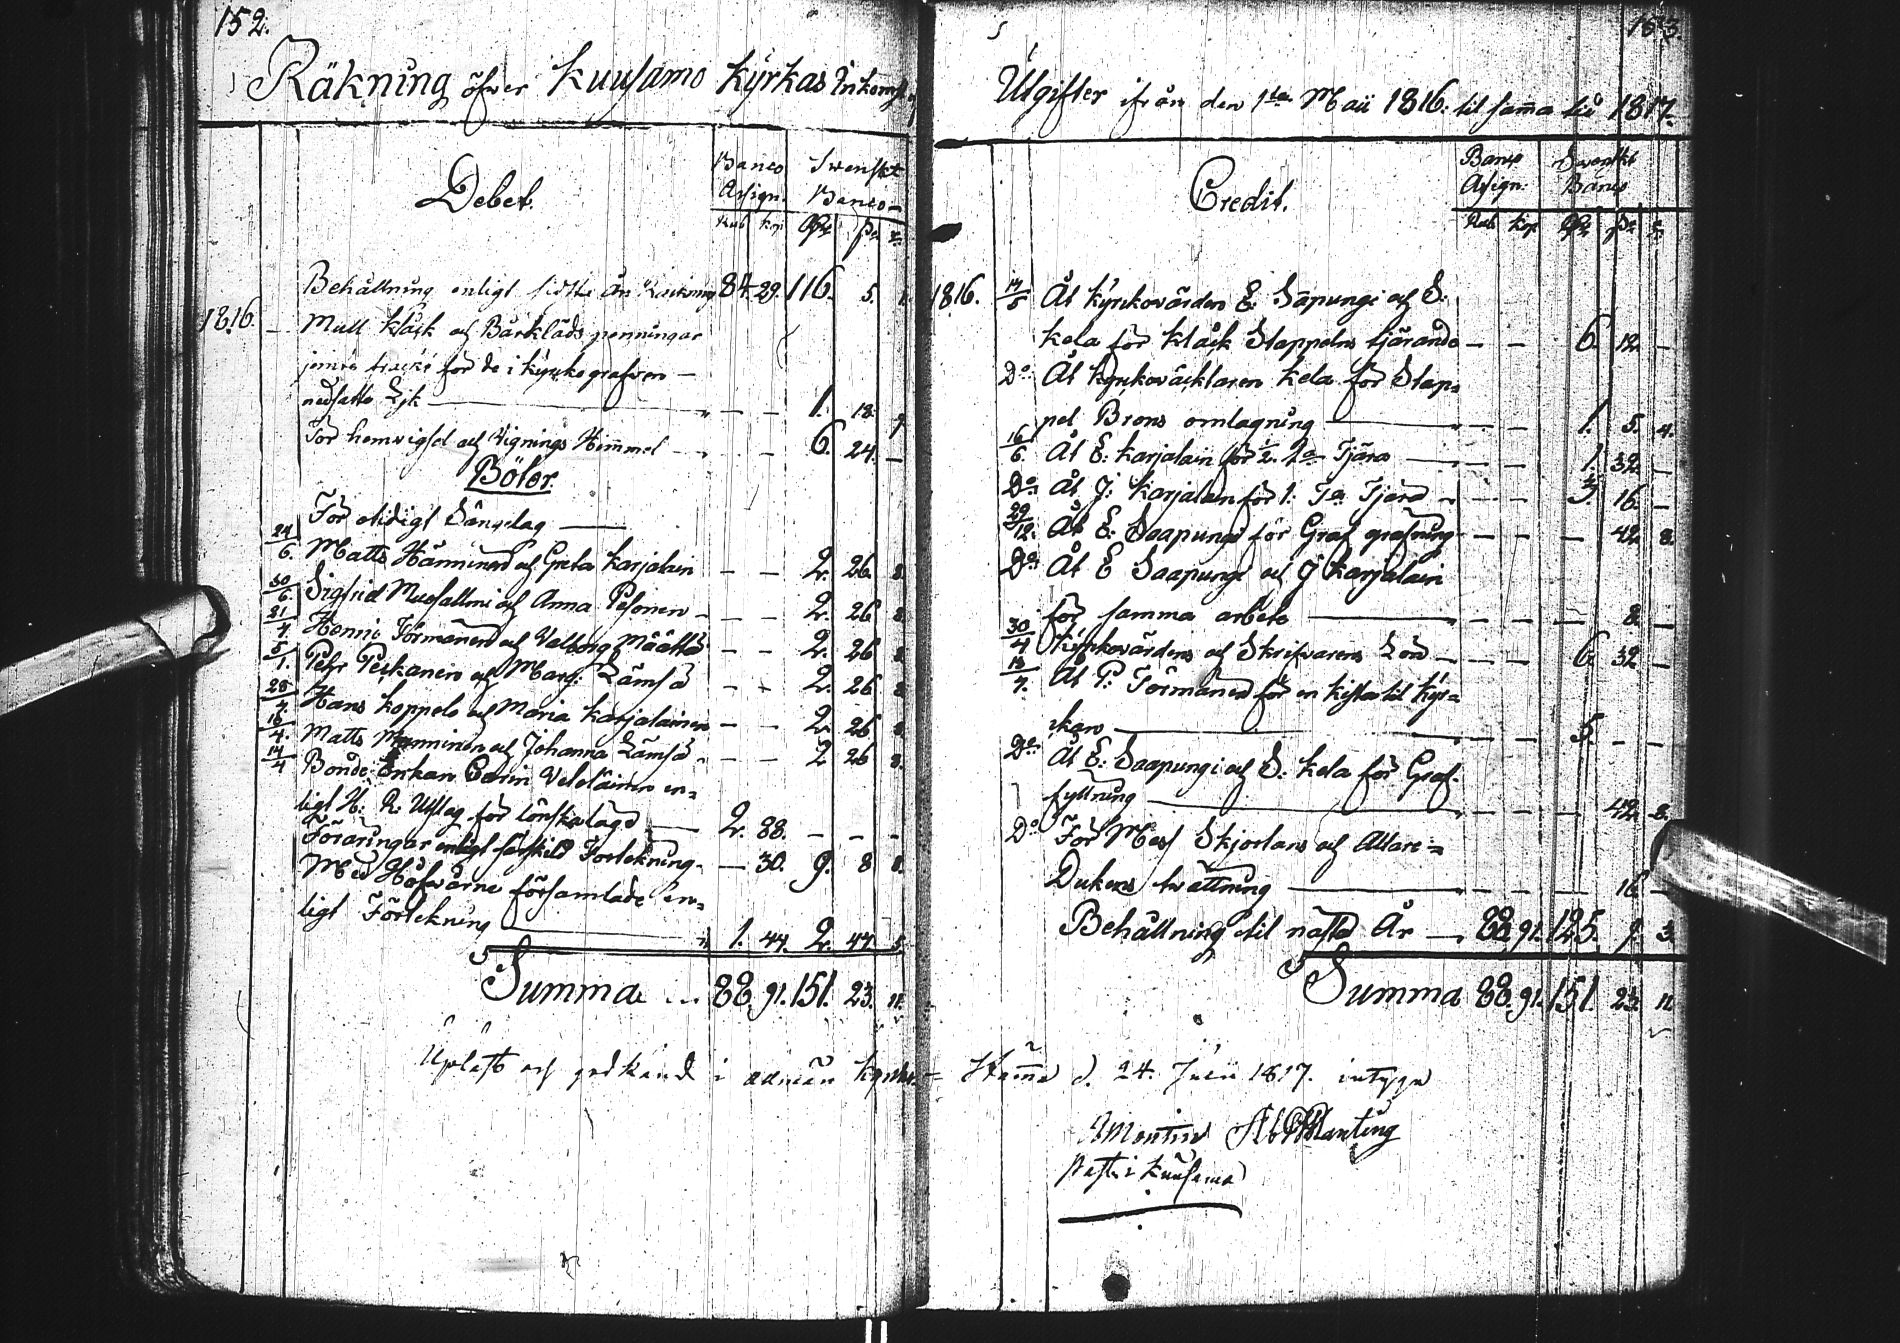 152.
Räkning öfver Kuusamo Kyrkas Inkomst
Debet.
Banco Assign.
Swenskt Banco
Rub kop
Behållning enligt sidsta års Räkning 84. 29. 116. 5. 1.
1816. Mull klåck och Bårkläds penningar
för de i kyrkografven
nedsatte Lijk — — 1. 18. 9.
För hemvigsel och Vignings Himmel — — 6. 24. —
Böter.
För otidigt Sängelag
24/6. Matts Hänninen och Greta Karjalain — — 2. 26. 8.
30/6. Sigfrid Mursallmi och Anna Pesonen — — 2. 26 8
21/4. Henric Törmänen och Valborg Määttä — — 2. 26 8
5/1. Pehr Peskanen och Marg: Lämsä — — 2. 26 8
28/4 Hans Koppelo och Maria Karjalainen — — 2. 26 8.
16/4. Matts Manninen och Johanna Lämsä — — 2 26 8.
14/4 Bonde Enkan Carin Veteläinen en=
ligt H: R: Utslag för lönskalägd — 2. 88. — — —
Föräringar enligt särskild Förtekning — 30. 9. 8 8.
Med Håfvarne församlade en=
ligt Förtekning 1. 44. 2. 44 5
Summa 88. 91. 151. 23. 11.
Upläst och godkänd i allmän Kyrko=
153.
Utgifter ifrån den 1sta Maii 1816. til sama tid 1817.
Credit.
Banco Assign:
Swenskt Banco
Rub kop
1816. 14/5 Åt Kyrkovärden E: Säpungi och S:
Kela för klåck Stappelns tjärande — — 6. 12. —
Do Åt kyrkoväcktaren Kela för Stap=
pel Brons omlagning — — 1. 5. 4.
16/6. Åt E: Karjalain för 1/2 Ta Tjära — — 1. 32. —
Do Åt J: Karjalain för 1: Ta Tjära — — 3. 16. —
29/12. Åt E: Saapungi för Graf grafning — — — 42. 8.
Do Åt E Saapungi och J Karjalain
för samma arbete — — — 8. —
30/4 Kyrkovärdens och Skrifvarens Lön — — 6. 32 —
13/4. Åt P: Törmänen för en kista til kyr=
kan — — 5. — —
Do Åt E: Saapungi och S: Kela för Graf=
fyllning — — — 42. 8.
Do För Mess Skjortans och Altare=
Dukens tvättning — — — 16 —
Behållning til nästa År — 88. 91. 125. 9. 3.
Summa 88. 91. 151. 23. 11
Stäma d. 24. Junii 1817. intyga
AMontin Ab Planting
Past: i Kuusamo